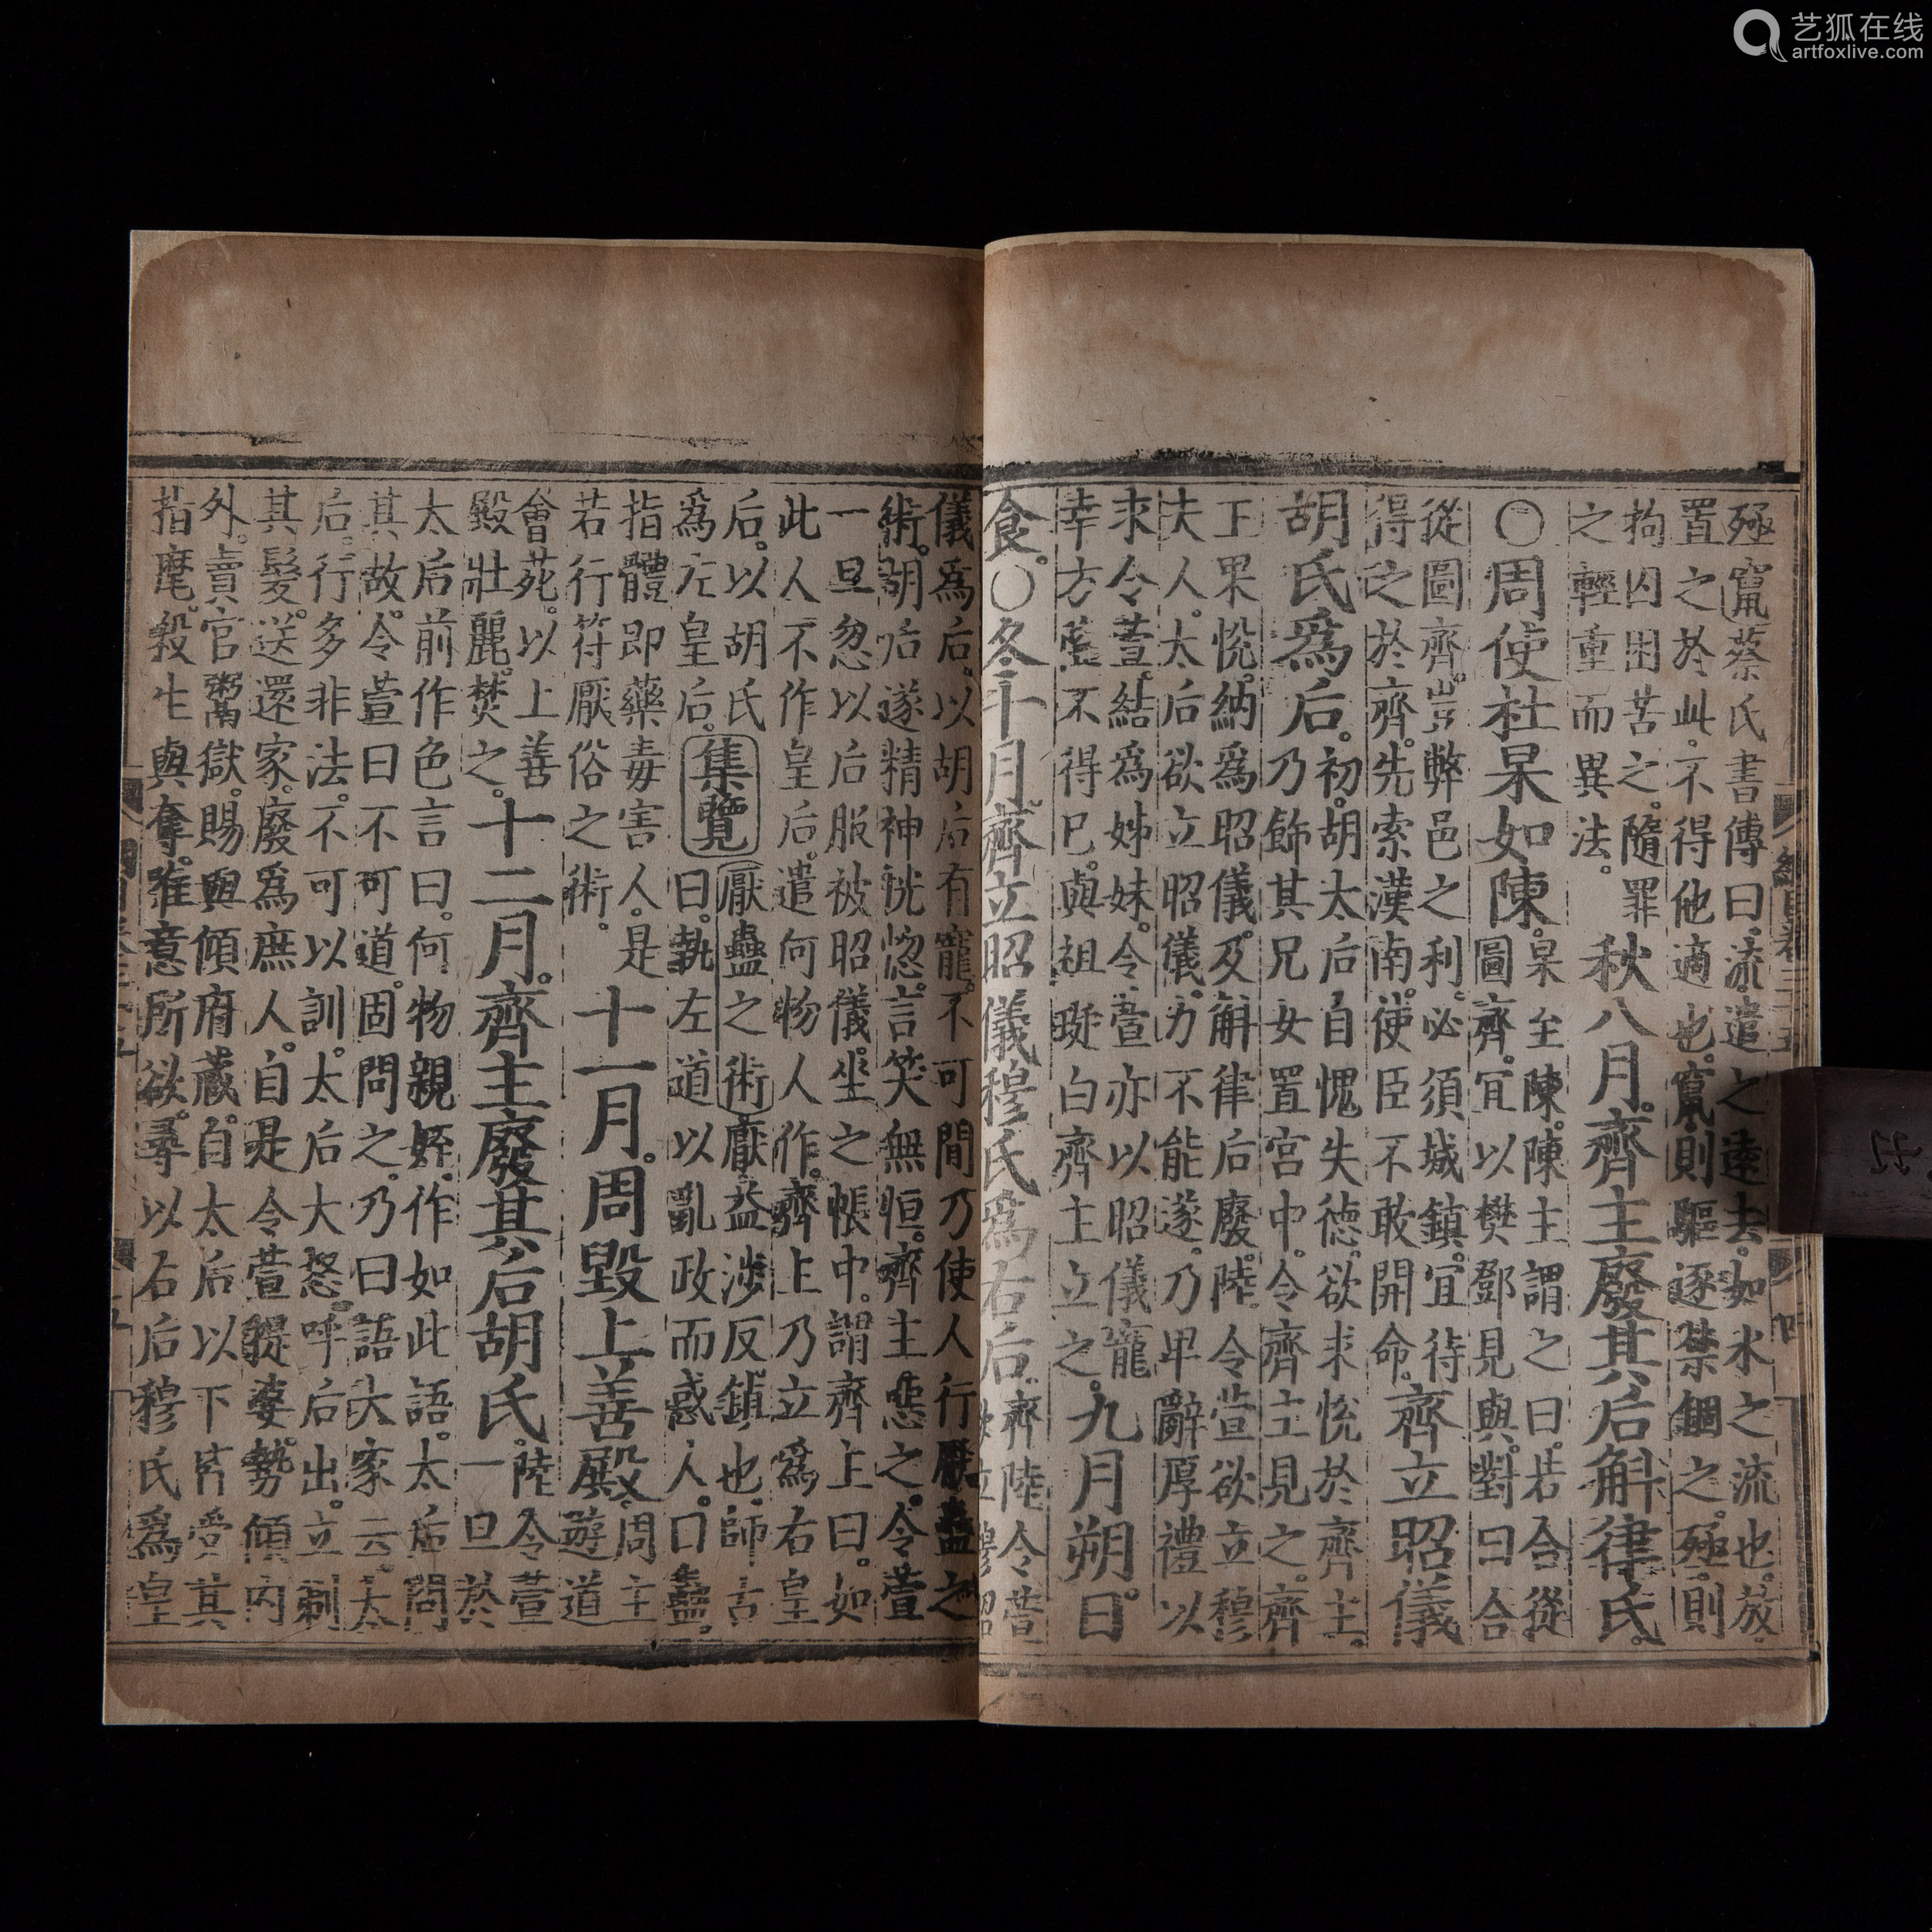 殛竄蔡氏書傅曰流遣之遠去如水之流也放
置之於此不得他適也竄則驅逐禁錮之殛則
拘囚困苦之隨罪
之輕重而異法
秋八月齊主廢其后斛律氏
〇周使杜杲如陳
杲至陳陳主謂之曰若合從
圖齊宜以樊鄧見與對曰合
從圖齊豈弊邑之利必須城鎮宜待
得之於齊先索漢南使臣不敢開命
齊立昭儀
胡氏爲后
初胡太后自愧失德欲求悅於齊主
乃飾其兄女置宮中令齊主見之齊
王果悅納爲昭儀及斛律后廢陸令萱欲立穆
夫人太后欲立昭儀力不能遂乃卑辭厚禮以
求令萱結爲姊妹令萱亦以昭儀寵
幸方盛不得已與祖珽白齊主立之
九月朔日
食〇冬十月齊立昭儀穆氏爲右后
齊陸令萱
欲立穆昭
儀爲后以胡后有寵不可間乃使人行厭蠱之
術胡后遂精神恍惚言笑無恒齊主惡之令萱
一旦忽以后服被昭儀坐之帳中謂齊上曰如
此人不作皇后遣何物人作齊上乃立爲右皇
后以胡氏
爲元皇后
集覽
厭蠱之術厭益涉反鎮也師古
曰執左道以亂政而惑人曰蠱
指體即藥毒害人是
若行符厭俗之術
十一月周毀上善殿
周主
遊道
會苑以上善
殿壯麗焚之
十二月齊主廢其后胡氏
陸令萱
一旦於
太后前作色言曰何物親姪作如此語太后問
其故令萱曰不可道固問之乃曰語大家云太
后行多非法不可以訓太后大怒呼后出立剃
其髮送還家廢爲庶人自是令萱提婆勢傾內
外賣官鬻獄賜與傾府藏自太后以下皆受其
指麾殺生與奪唯意所欲尋以右后穆氏爲皇
艺狐在线
artfoxlive.com